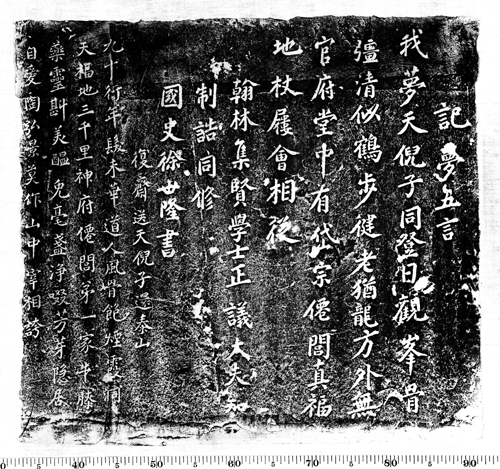 記夢五言
我夢天倪子同登日觀峯骨
彊清似鶴步健老猶龍方外無
官府堂中有岱宗僊閭真福
地杖屨會相從
翰林集賢學士正議大夫知
制誥同修
國史徐世隆書
復齋送天倪子還泰山
九十行年髮未華道人風骨飽煙霞洞
天福地三千里神府僊閭第一家牛膝
藥靈斟美醞兔毫盞淨啜芳芽隱居
自愛陶弘景莫作山中宰相誇